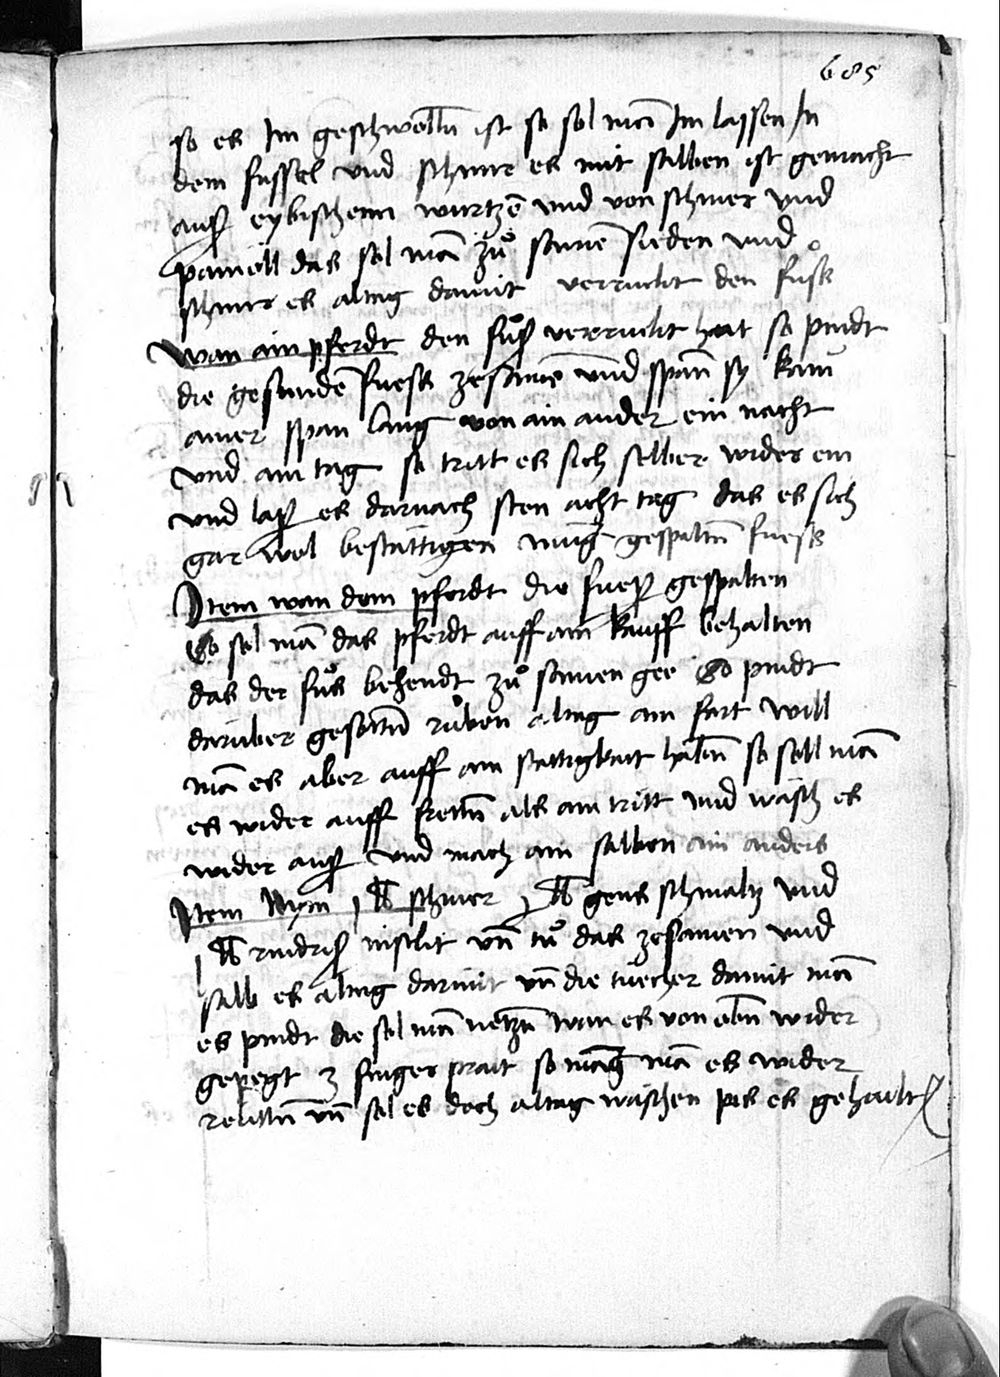 685
so es Im geschwollñ ist so sol mã Im lassen In
dem fussel vnd schmir es mit salben ist gemacht
auß eybischenn wurtzẽ vnd von schmer vnd
pamöll das sol mã zů samẽ sieden vnd
schmir es altag damit verruckt den fůss
Wan ain pferdt den fůß verruckt hat so pindt
die gesundẽ fuess zesamẽ vnd spañ sy kaũ
ainer span lang von ain ander ein nacht
vnd ain tag so tritt es sich selber wider ein
vnd laß es darnach sten acht tag das es sich
gar wol bestättigen mug gespaltñ fuess
Item wan dem pferdt die fueß gespalten
So sol mã das pferdt auff ain kauff behalten
das der fůs behendt zů samen gee So pindt
darüber gesottñ růben altag ain fart will
mã es aber auff ain stättigkait habñ so soll mã
es wider auff als ain tritt vnd wäsch es
wider auß vnd mach ain salben ain anders
Item Nym j ℔ schmer j ℔ gens schmaltz vnd
j ℔ rindriß inslit vñ tů das zesamen vnd
salb es altag darmit vñ die tuecher damit mã
es pindt die sol mã netzñ wan es von obñ wider
gepegt 3 finger prait so mag mã es wider
reittñ vñ sol es doch altag wäschen pis es gehailt